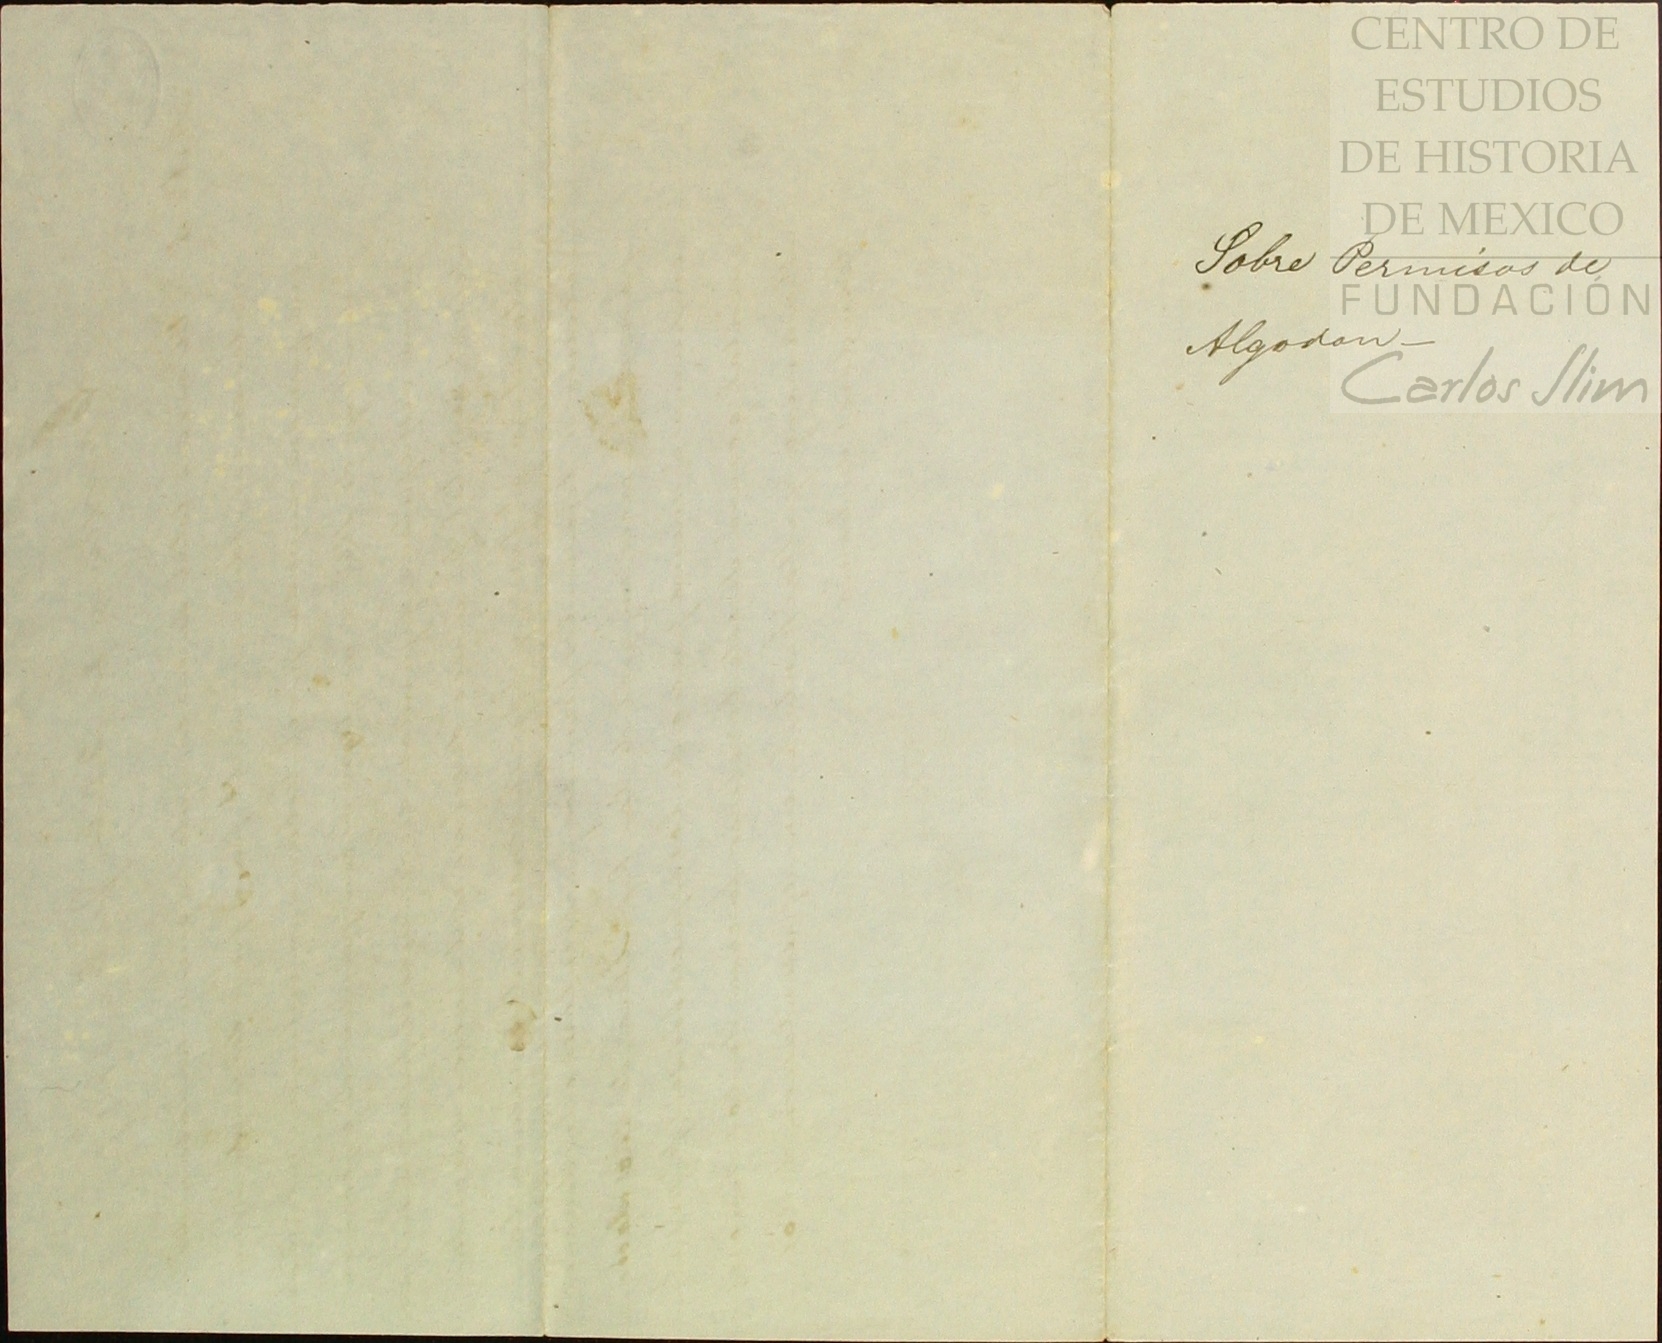 CENTRO DE
ESTUDIOS
DE HISTORIA
DE MEXICO
FUNDACIÓN
Carlos Slim
Sobre Permisos de
Algodon—